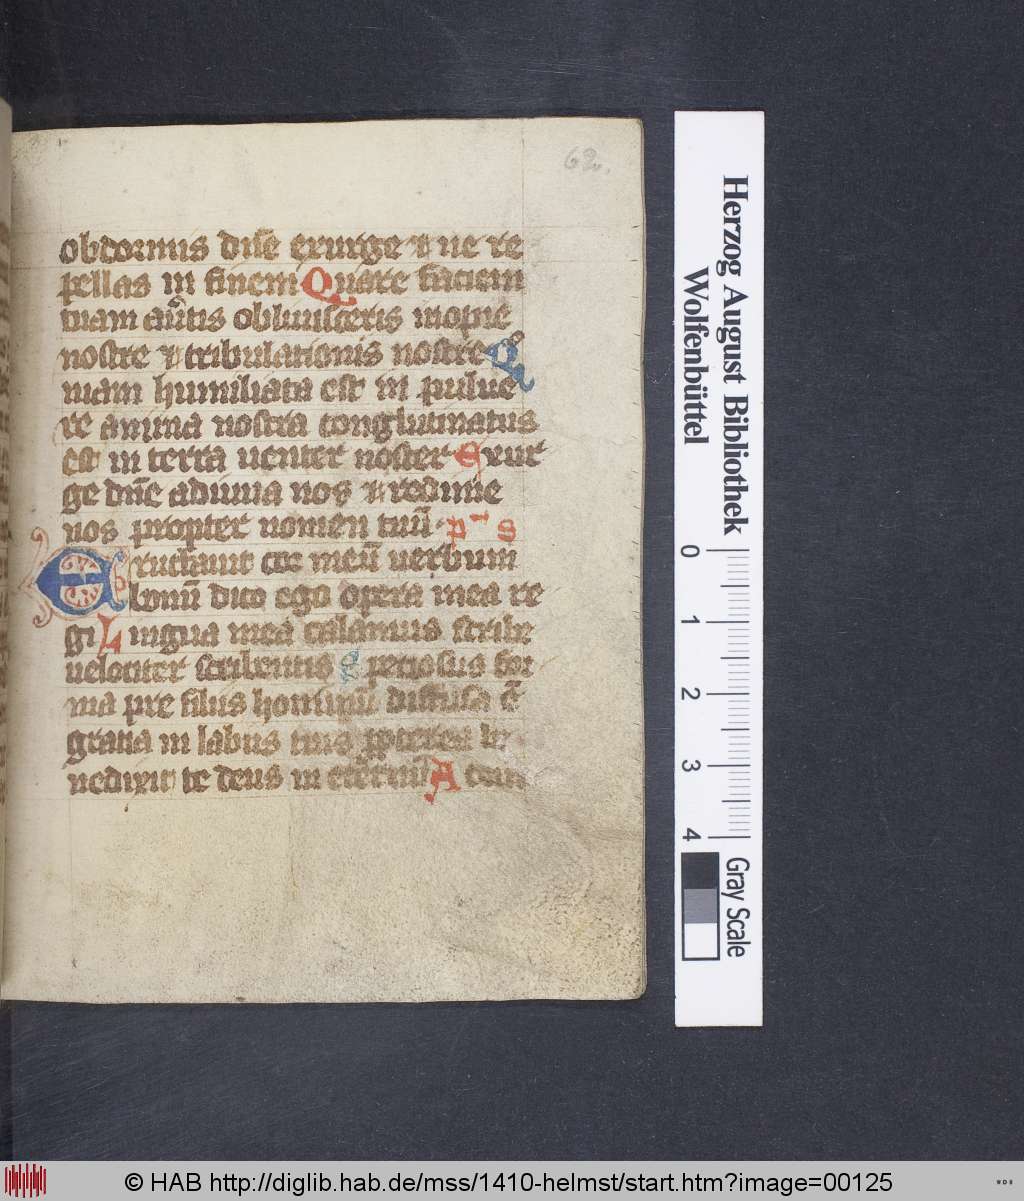 62.
obdormis dn̄e exurge ⁊ ne re
pellas in finem Quare faciem
tuam auertis obliuisceris inopie
nostre ⁊ tribulationis nostre Q
niam humiliata est in pulue
re anima nostra conglutinatus
est in terra uenter noster Exur
ge dn̄e adiuua nos ⁊ redime
nos propter nomen tuū. ps
Eructauit cor meū uerbum
bonū dico ego opera mea re
gi Lingua mea calamus scribe
uelociter scribentis Speciosus for
ma pre filiis hominū diffusa ē
gratia in labiis tuis ꝓpterea be
nedixit te deus in eternū A ccin
Herzog August Bibliothek
Wolfenbüttel
0 1 2 3 4
Gray Scale
© HAB http://diglib.hab.de/mss/1410-helmst/start.htm?image=00125